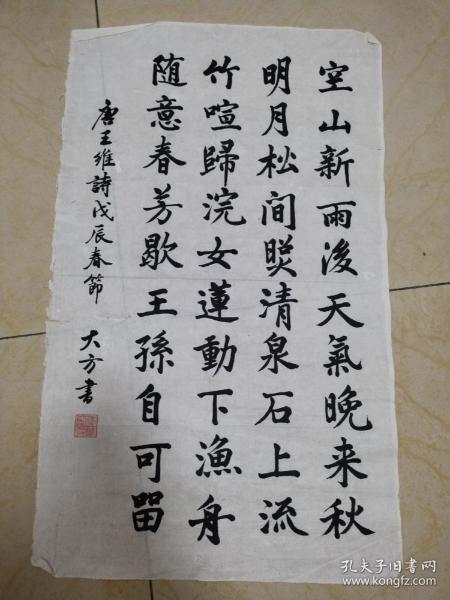 空山新雨後天氣晚来秋
明月松间照清泉石上流
竹喧歸浣女蓮動下漁舟
随意春芳歇王孫自可留
唐王维詩戊辰春節
大方書
孔夫子旧书网
www.kongfz.com